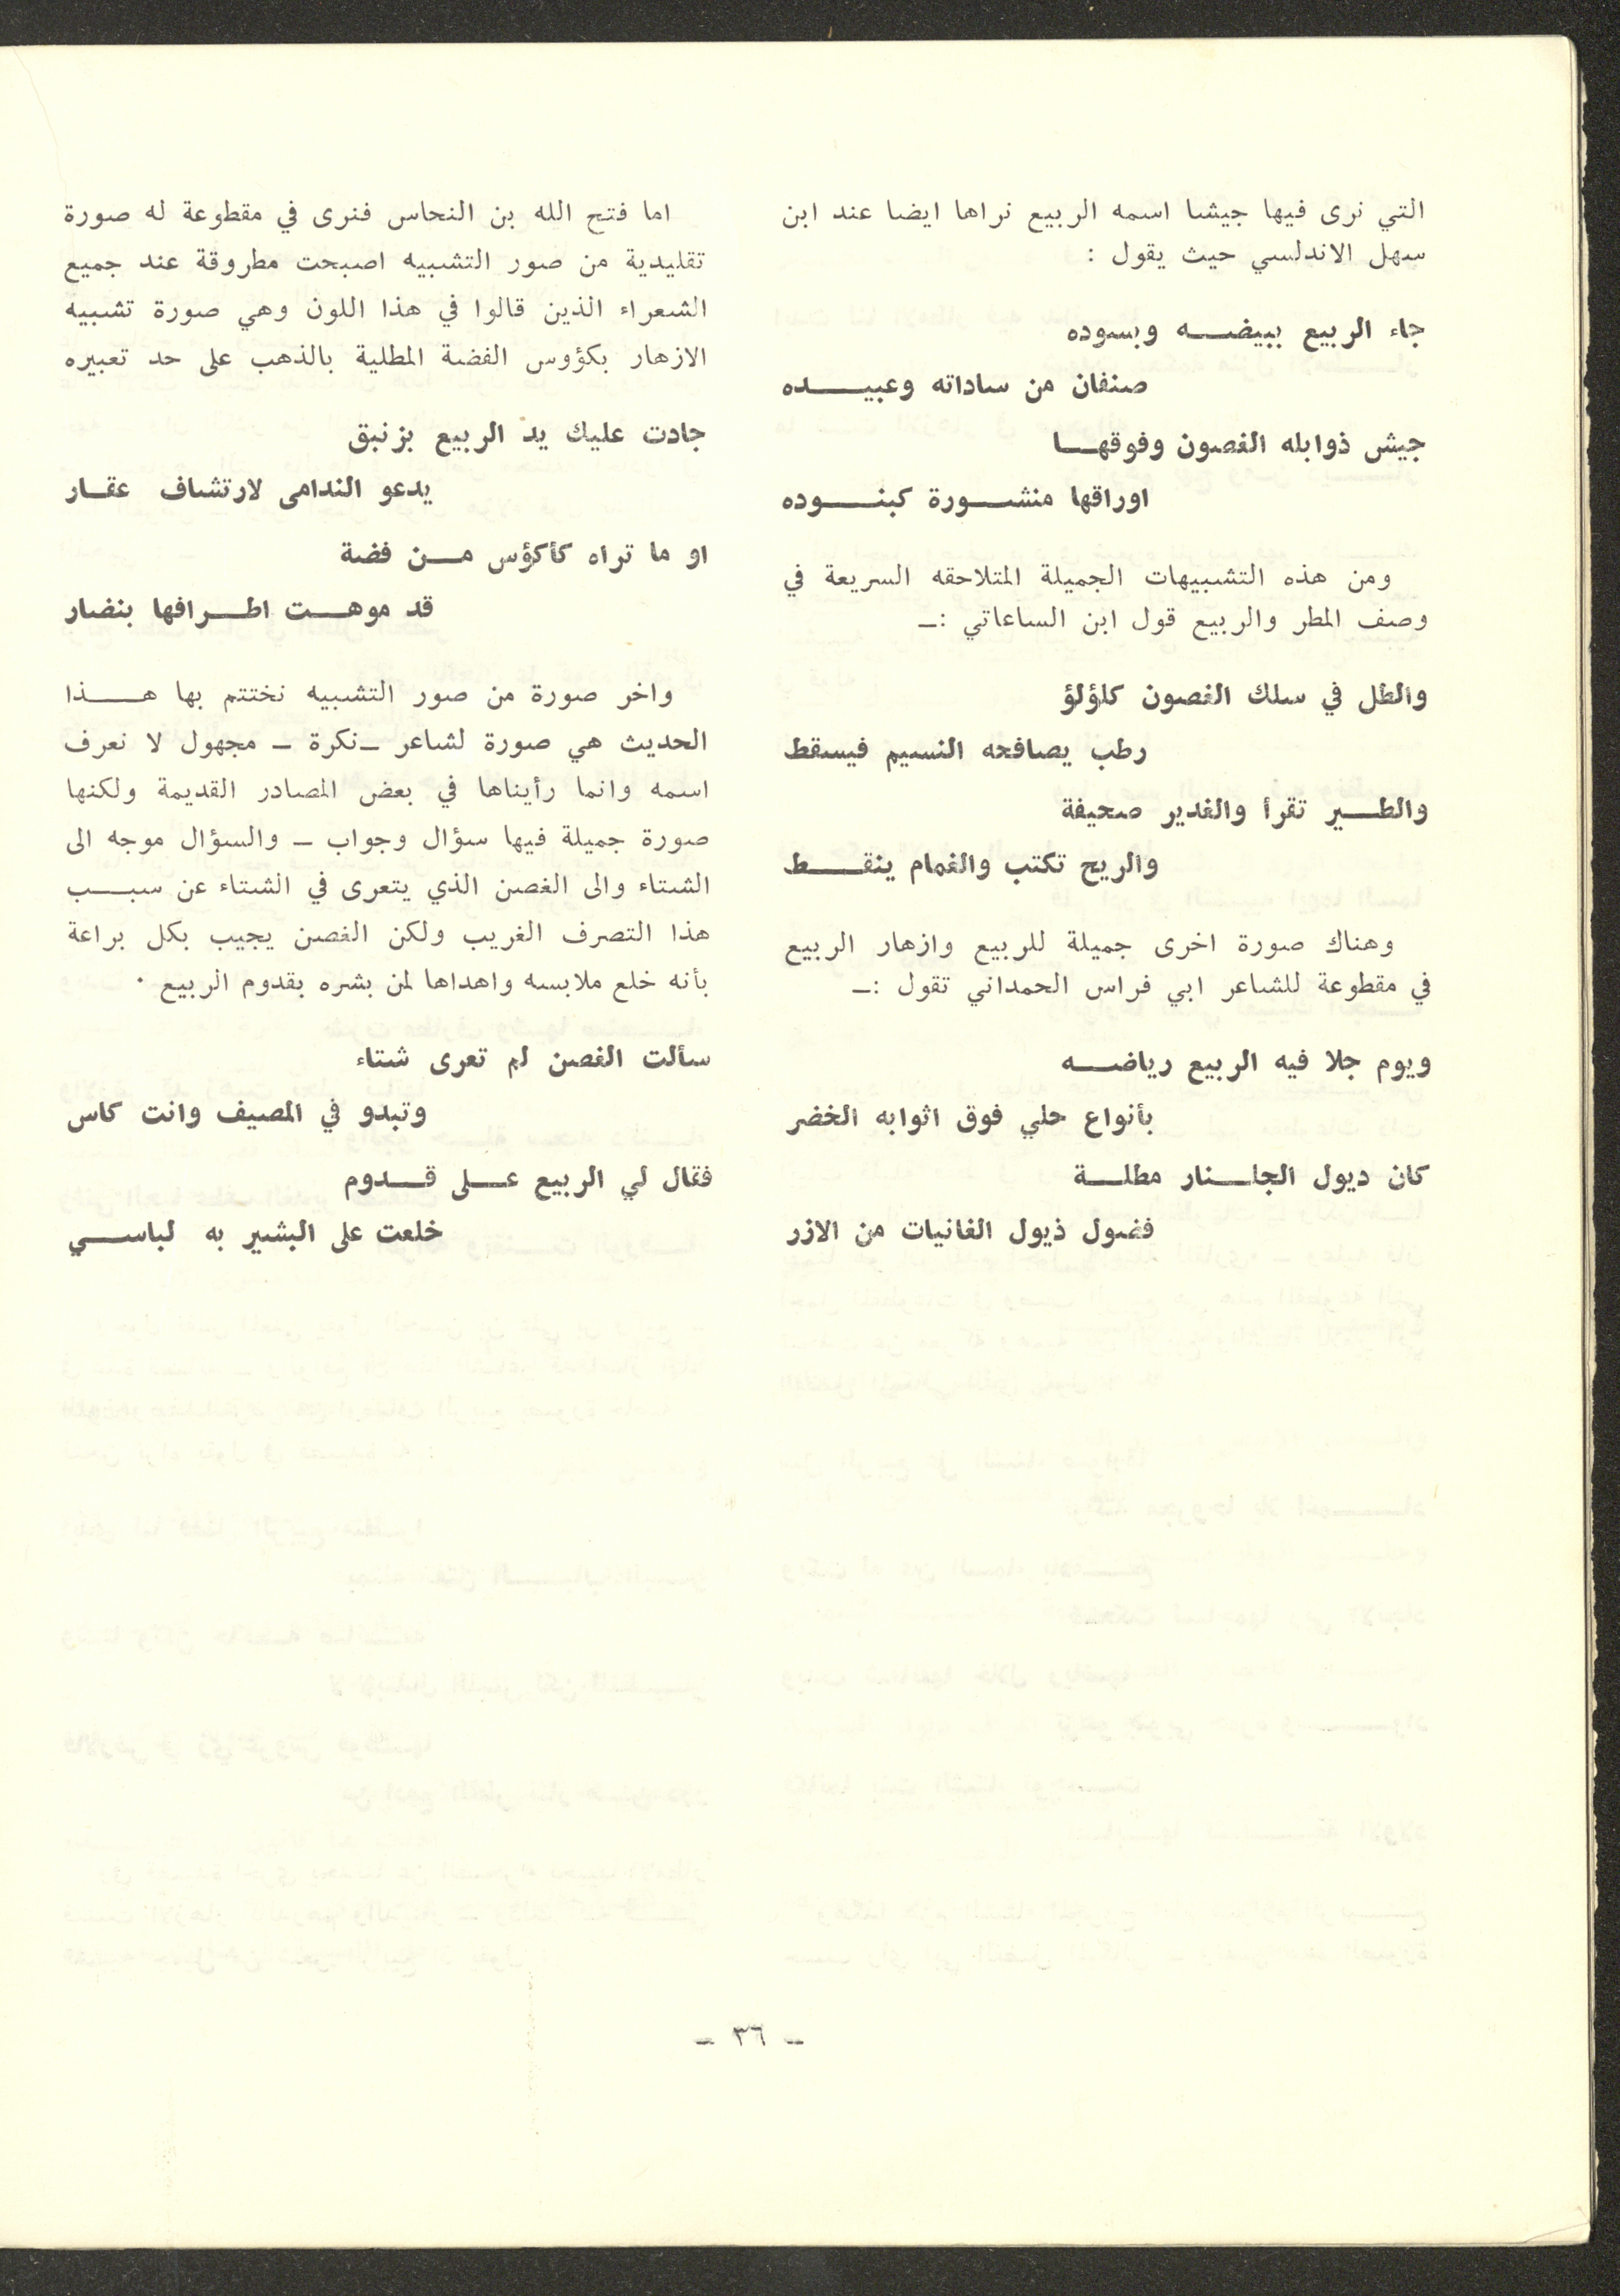 التي نرى فيها جيشا اسمه الربيع نراها ايضا عند ابن
سهل الاندلسي حيث يقول :
جاء الربيع ببيضه وبسوده
صنفان من ساداته وعبيده
جيش ذوابله الغصون وفوقها
اوراقها منشورة كبنوده
ومن هذه التشبيهات الجميلة المتلاحقه السريعة في
وصف المطر والربيع قول ابن الساعاتي :ـ
والطل في سلك الغصون كلؤلؤ
رطب يصافحه النسيم فيسقط
والطير تقرأ والغدير صحيفة
والريح تكتب والغمام ينقط
وهناك صورة اخرى جميلة للربيع وازهار الربيع
في مقطوعة للشاعر ابي فراس الحمداني تقول :ـ
ويوم جلا فيه الربيع رياضه
بأنواع حلي فوق اثوابه الخضر
كان ديول الجلنار مطلة
فضول ذيول الغانيات من الازر
اما فتح الله بن النحاس فنرى في مقطوعة له صورة
تقليدية من صور التشبيه اصبحت مطروقة عند جميع
الشعراء الذين قالوا في هذا اللون وهي صورة تشبيه
الازهار بكؤوس الفضة المطلية بالذهب على حد تعبيره
جادت عليك يد الربيع بزنبق
يدعو الندامى لارتشاف عقار
او ما تراه كأكؤس من فضة
قد موهت اطرافها بنضار
واخر صورة من صور التشبيه نختتم بها هذا
الحديث هي صورة لشاعر ـ نكرة ـ مجهول لا نعرف
اسمه وانما رأيناها في بعض المصادر القديمة ولكنها
صورة جميلة فيها سؤال وجواب ـ والسؤال موجه الى
الشتاء والى الغصن الذي يتعرى في الشتاء عن سبب
هذا التصرف الغريب ولكن الغصن يجيب بكل براعة
بأنه خلع ملابسه واهداها لمن بشره بقدوم الربيع ٠
سألت الغصن لم تعرى شتاء
وتبدو في المصيف وانت كاس
فقال لي الربيع على قدوم
خلعت على البشير به لباسي
ـ ٣٦ ـ